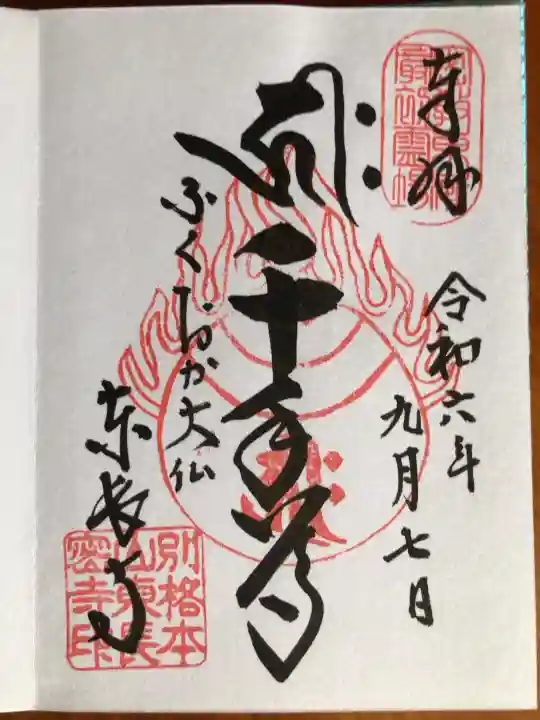 奉拝
最初霊場
令和六年
九月七日
千手尊
ふくおか大仏
東長寺
別格本
山東長
密寺印